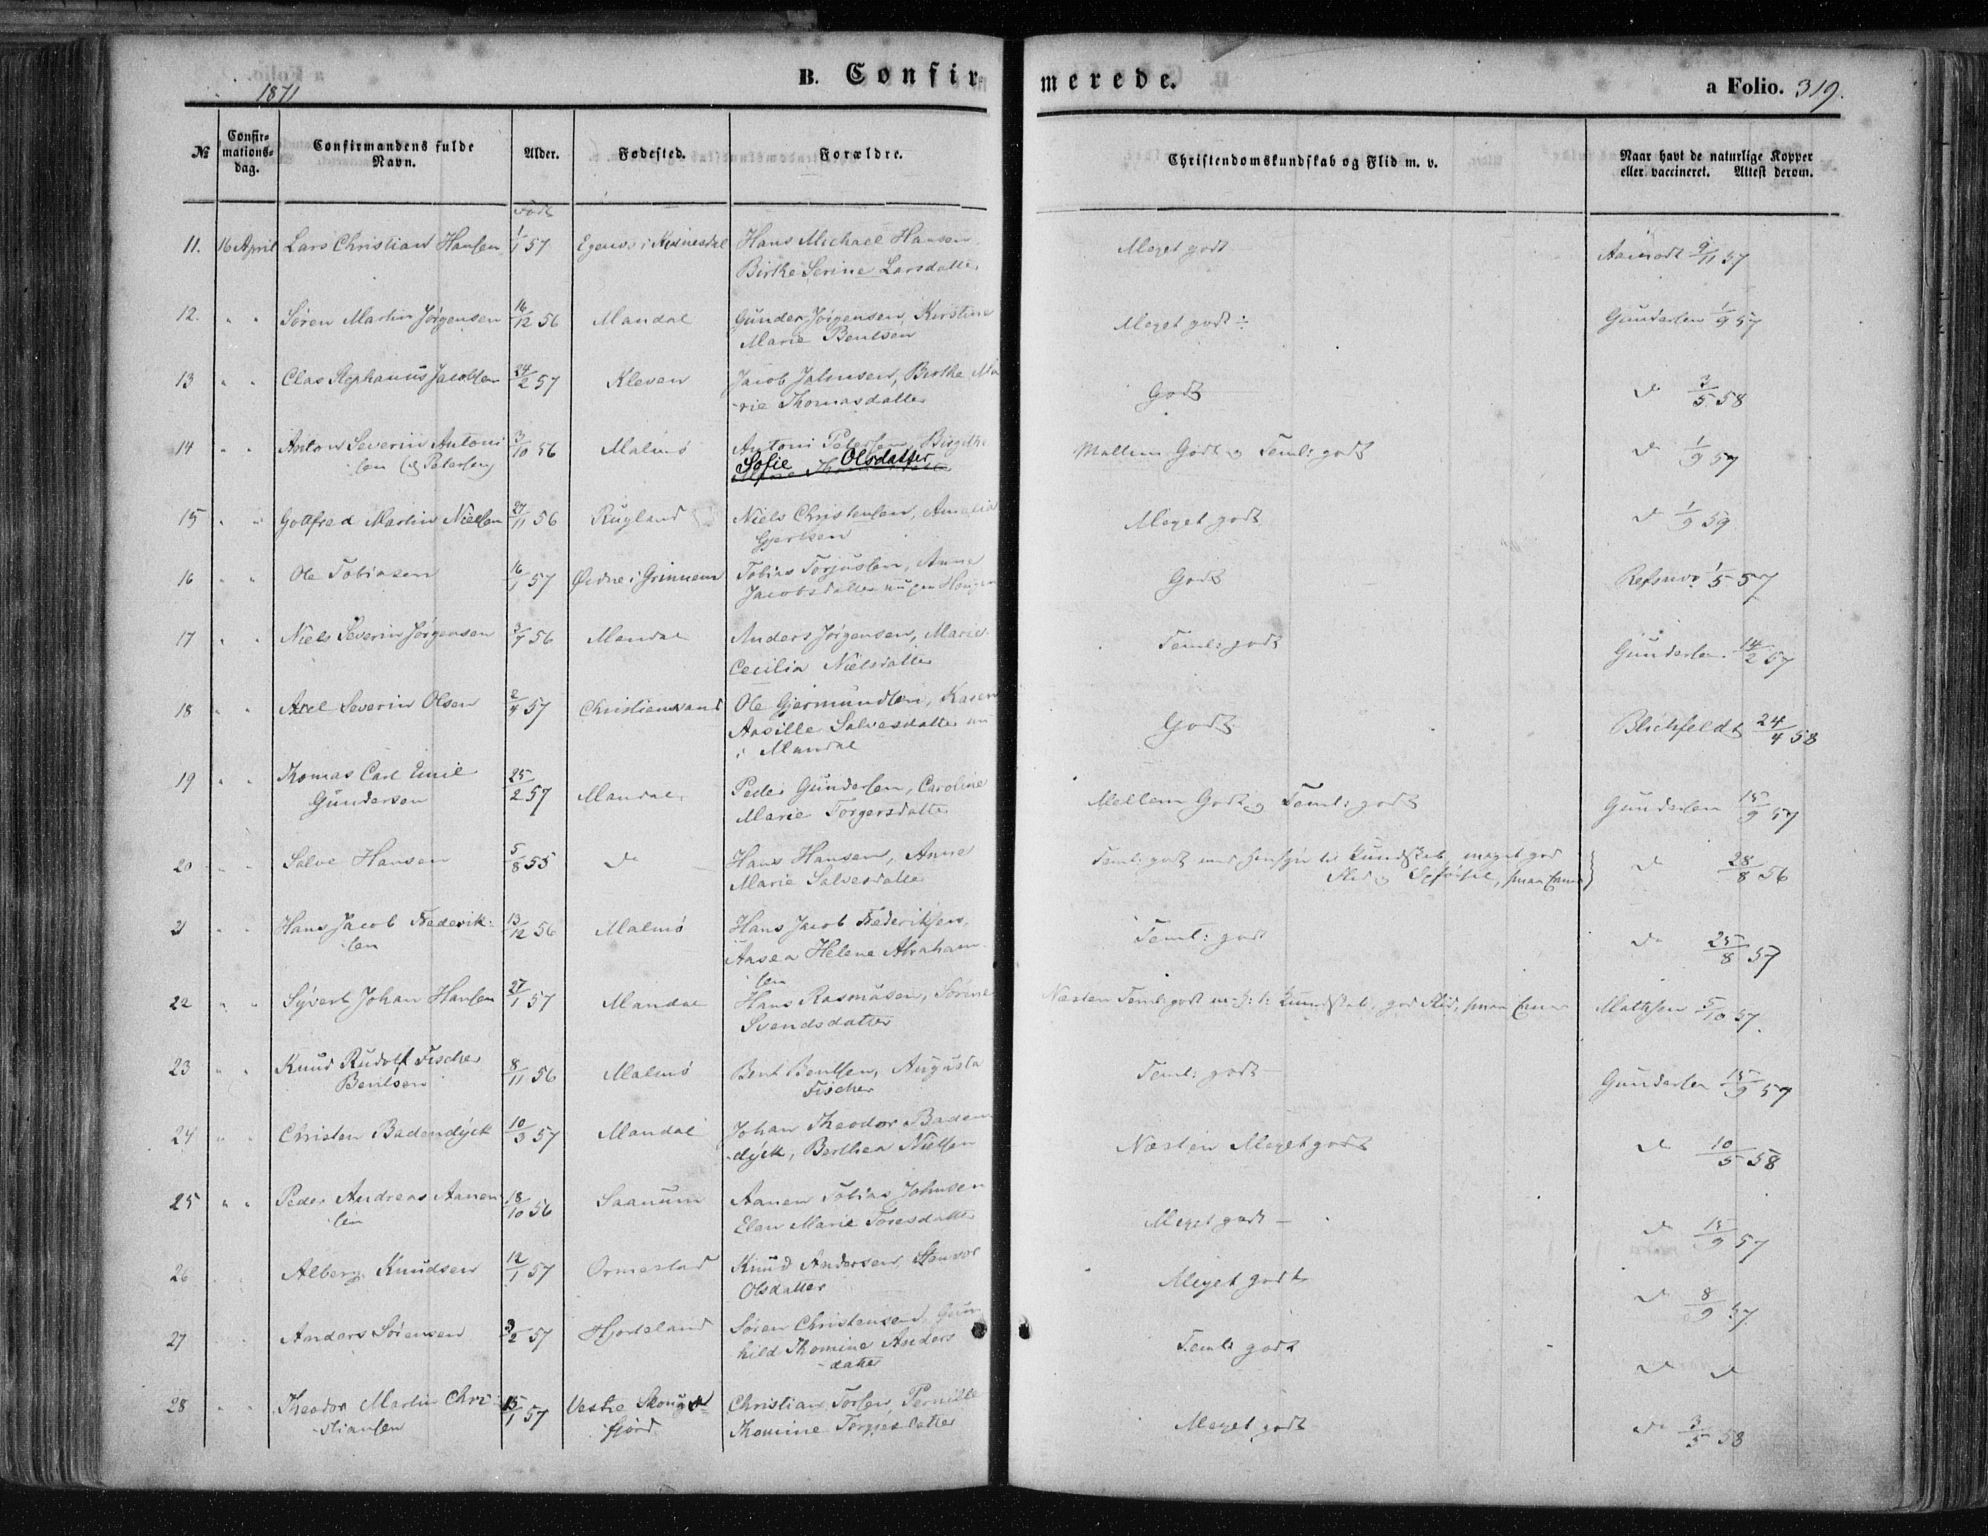 1871
B. Confirmerede.
a Folio. 319.
№ Confirmationsdag. Confirmandens fulde Navn. Alder. Fødested. Forældre. Christendomskundskab og Flid m. v. Naar havt de naturlige Kopper eller vaccineret. Attest derom.
Født
11. 16 April Lars Christian Hansen 1/1 57 Hans Michael Hansen Meget godt 9/11 57
Birthe Serine Larsdatter
12. " " Søren Martin Jørgensen 16/12 56 Mandal Gunder Jørgensen, Kirstine Meget godt ÷ Gundersen 1/9 57
Marie Bentsen
13 " " Clas Stephanus Jacobsen 24/2 57 Kleven Jacob Johnsen, Birthe Ma Godt do 3/5 58
-rie Thomasdatter
14 " " Anton Severin Antoni 3/10 56 Malmø Antoni Petersen, Birgithe Mellem Godt og Teml: godt do 1/9 57
-sen (og Petersen) Sofie Olsdatter
15 " " Gottfred Martin Nielsen 27/11 56 Rugland Niels Christensen, Amalia Meget godt do 1/9 59
Gjertsen
16 " " Ole Tobiasen 16/1 57 Øidne i Grinnem Tobias Torjussen, Anne Godt 1/5 57
Jacobsdatter
17 " " Niels Severin Jørgensen 3/7 56 Mandal Anders Jørgensen, Marie Teml: godt Gundersen 14/2 57
Cecilia Nielsdatter
18 " " Axel Severin Olsen 2/4 57 Christianssand Ole Gjermundsen, Karen Godt Blichfeldt 24/4 58
Aasille Salvesdatter nu
i Mandal
19 " " Thomas Carl Emil 25/2 57 Mandal Peder Gundersen, Caroline Mellem Godt og Teml: godt Gundersen 15/9 57
Gundersen Marie Torgersdatter
20 " " Salve Hansen 5/8 55 do Hans Hansen, Anne Teml: godt med Hensyn til Kundskab, meget god do 28/8 56
Marie Salvesdatter Flid og Opførsel, smaa Evner
21 " " Hans Jacob Frederik- 13/12 56 Malmø Hans Jacob Frederiksen, Teml: godt do 25/8 57
-sen Aasea Helene Abraham-
sen
22 " " Syvert Johan Hansen 27/1 57 Mandal Hans Rasmusen, Sørine Næsten Teml: godt m. H: t: Kundskab, god Flid, smaa Evner Mathsen 5/10 57.
Svendsdatter
23 " " Knud Rudolf Fischer 8/11 56 Malmø Bent Bentsen, Augusta Teml: godt Gundersen 15/9 57
Bentsen Fischer
24 " " Christen Badendyck 10/3 57 Mandal Johan Theodor Baden Næsten Meget godt do 10/5 58
-dyck, Berthea Nielsen
25 " " Peder Andreas Aanen 18/10 56 Saanum Aanen Tobias Johnsen Meget godt do 15/9 57
-sen Elen Marie Toresdatter
26 Alberg Knudsen 12/1 57 Ormestad Knud Andersen Meget godt do 8/9 57
Olsdatter
27 Anders Sørensen 3/2 57 Hjorteland Søren Christensen, Gun Teml: godt do do
hild Thomine Anders
-datter
28 " " Theodor Martin Chri 15/1 57 Vestre Skougs Christian Torsen, Pernille Meget godt do 3/5 58
-stiansen fjord Thomine Torgjesdatter